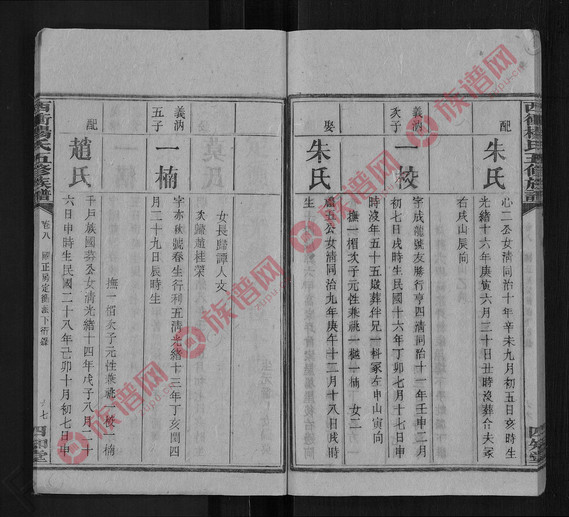 西衝楊氏五修族譜
配
朱氏
心二公女清同治十年辛未九月初五日亥時生
光緒十六年庚寅六月三十日丑時沒葬合夫冢
右戌山辰向
義訥
次子
一校
字成龍號友勝行亨四清同治十一年壬申二月
初七日戌時生民國十六年丁卯七月十七日申
時沒年五十五歲葬伴兄一科冢左申山寅向
撫一楣次子元性兼祧一樾一楠 女二
娶
朱氏
盧五公女清同治九年庚午十二月十八日戌時
生
女長歸譚人文
次歸趙桂榮
義訥
五子
一楠
字亦秋號春生行利五清光緒十三年丁亥閏四
月二十九日辰時生
撫一楣次子元性兼祧一校一楠
配
趙氏
千戶族國蓊公女清光緒十四年戊子八月二十
六日申時生民國二十八年己卯十月初七日申
西衝楊氏五修族譜
卷八
七
四知堂
四知堂
族谱网